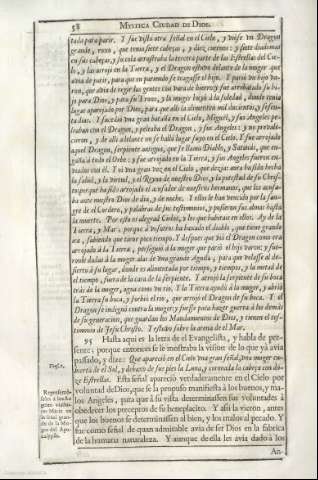 58 MYSTICA CIUDAD DE DIOS.
toda para parir. Y fue vista otra señal en el Cielo, y viose un Dragon
grande, roxo, que tenia siete cabeças, y diez cuernos: y siete diademas
en sus cabeças, y su cola arrastraba la tercera parte de las Estrellas del Cie-
lo, y las arrojò en la Tierra, y el Dragon estuvo delante de la muger que
avia de parir, para que en pariendo se tragasse el hijo. Y pariò un hijo va-
ron, que avia de regir las gentes con vara de hierro: y fue arrebatado su hi-
jo para Dios, y para su Trono, y la muger huyò à la soledad, donde tenia
lugar aparejado por Dios, para que alli la alimenten mil ducientos, y sesen-
ta dias. Y sucediò una gran batalla en el Cielo, Miguèl, y sus Angeles pe-
leaban con el Dragon, y peleaba el Dragon, y sus Angeles: y no prevale-
cieron, y de alli adelante no se hallò lugar suyo en el Cielo. Y fue arrojado
aquel Dragon, serpiente antigua, que se llama Diablo, y Satanàs, que en-
gaña à todo el Orbe: y fue arrojado en la Tierra, y sus Angeles fueron em-
biados con èl. Y oì una gran voz en el Cielo, que dezia: aora ha sido hecha
la salud, y la virtud, y el Reyno de nuestro Dios, y la potestad de su Chris-
to: por que ha sido arrojado el acusador de nuestros hermanos, que los acusa-
ba ante nuestro Dios de dia, y de noche. Y ellos le han vencido por la san-
gre de el Cordero, y palabras de sus testimonios, y pusieron sus almas hasta
la muerte. Por esto os alegrad Cielos, y los que habitais en ellos. Ay de la
Tierra, y Mar; porque à vosotros ha baxado el diablo, que tiene grande
ira, sabiendo que tiene poco tiempo. Y despues que viò el Dragon como era
arrojado à la Tierra, persiguiò à la muger que pariò el hijo varon: y fue-
ronle dadas à la muger alas de una grande Aguila, para que volasse al de-
sierto à su lugar, donde es alimentada por tiempo, y tiempos, y la mitad de
el tiempo, fuera de la cara de la serpiente. Y arrojò la serpiente de su boca
tràs de la muger, agua como un rio. Y la Tierra ayudò à la muger, y abriò
la Tierra su boca, y sorbiò el rio, que arrojò el Dragon de su boca. Y el
Dragon se indignò contra la muger: y fuesse para hazer guerra à los demàs
de su generacion, que guardan los Mandamientos de Dios, y tienen el tes-
timonio de Jesu Christo. Y estuvo sobre la arena de el Mar.
95 Hasta aqui es la letra de el Evangelista, y habla de pre-
sente; porque entonces se le mostraba la vision de lo que yà avia
pasado, y dize: Que apareciò en el Cielo una gran señal, una muger cu-
bierta de el Sol, y debaxo de sus pies la Luna, y coronada la cabeça con do-
ze Estrellas. Esta señal apareciò verdaderamente en el Cielo por
voluntad de Dios, que se la propuso manifiesta à los buenos, y ma-
los Angeles, para que à su vista determinassen sus voluntades à
obedecer los preceptos de su beneplacito. Y assi la vieron, antes
que los buenos se determinassen al bien, y los malos al pecado. Y
fue como señal de quan admirable avia de ser Dios en la fabrica
de la humana naturaleza. Y aunque de ella les avia dado à los
An-